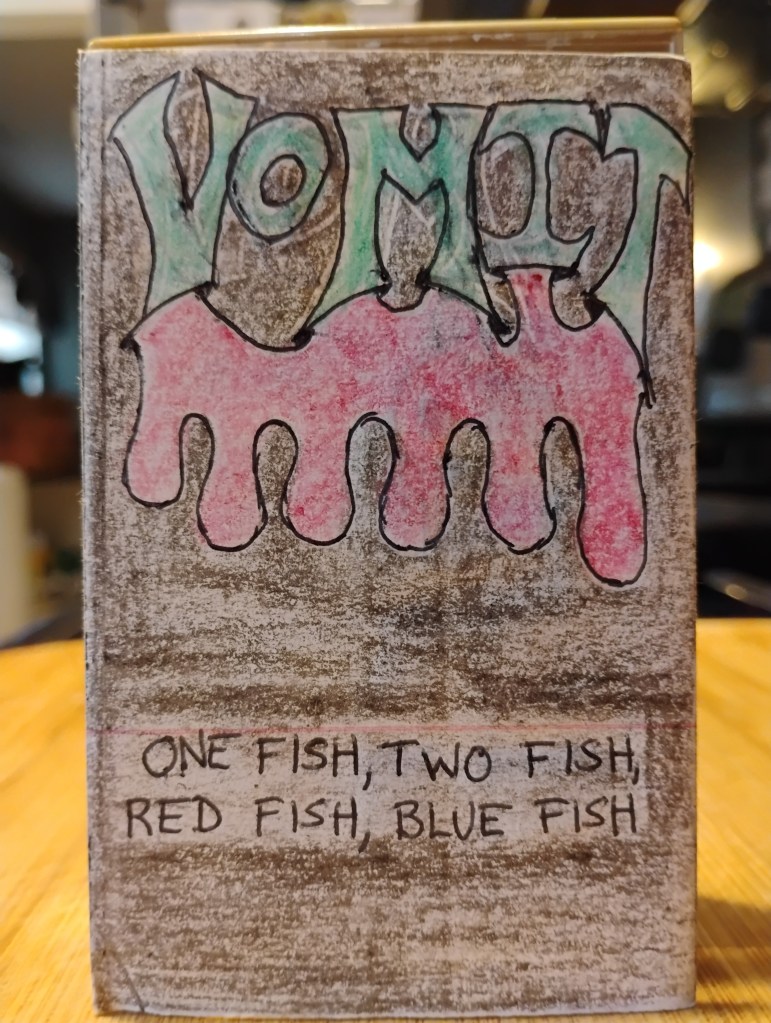 VOMIT
ONE FISH, TWO FISH,
RED FISH, BLUE FISH